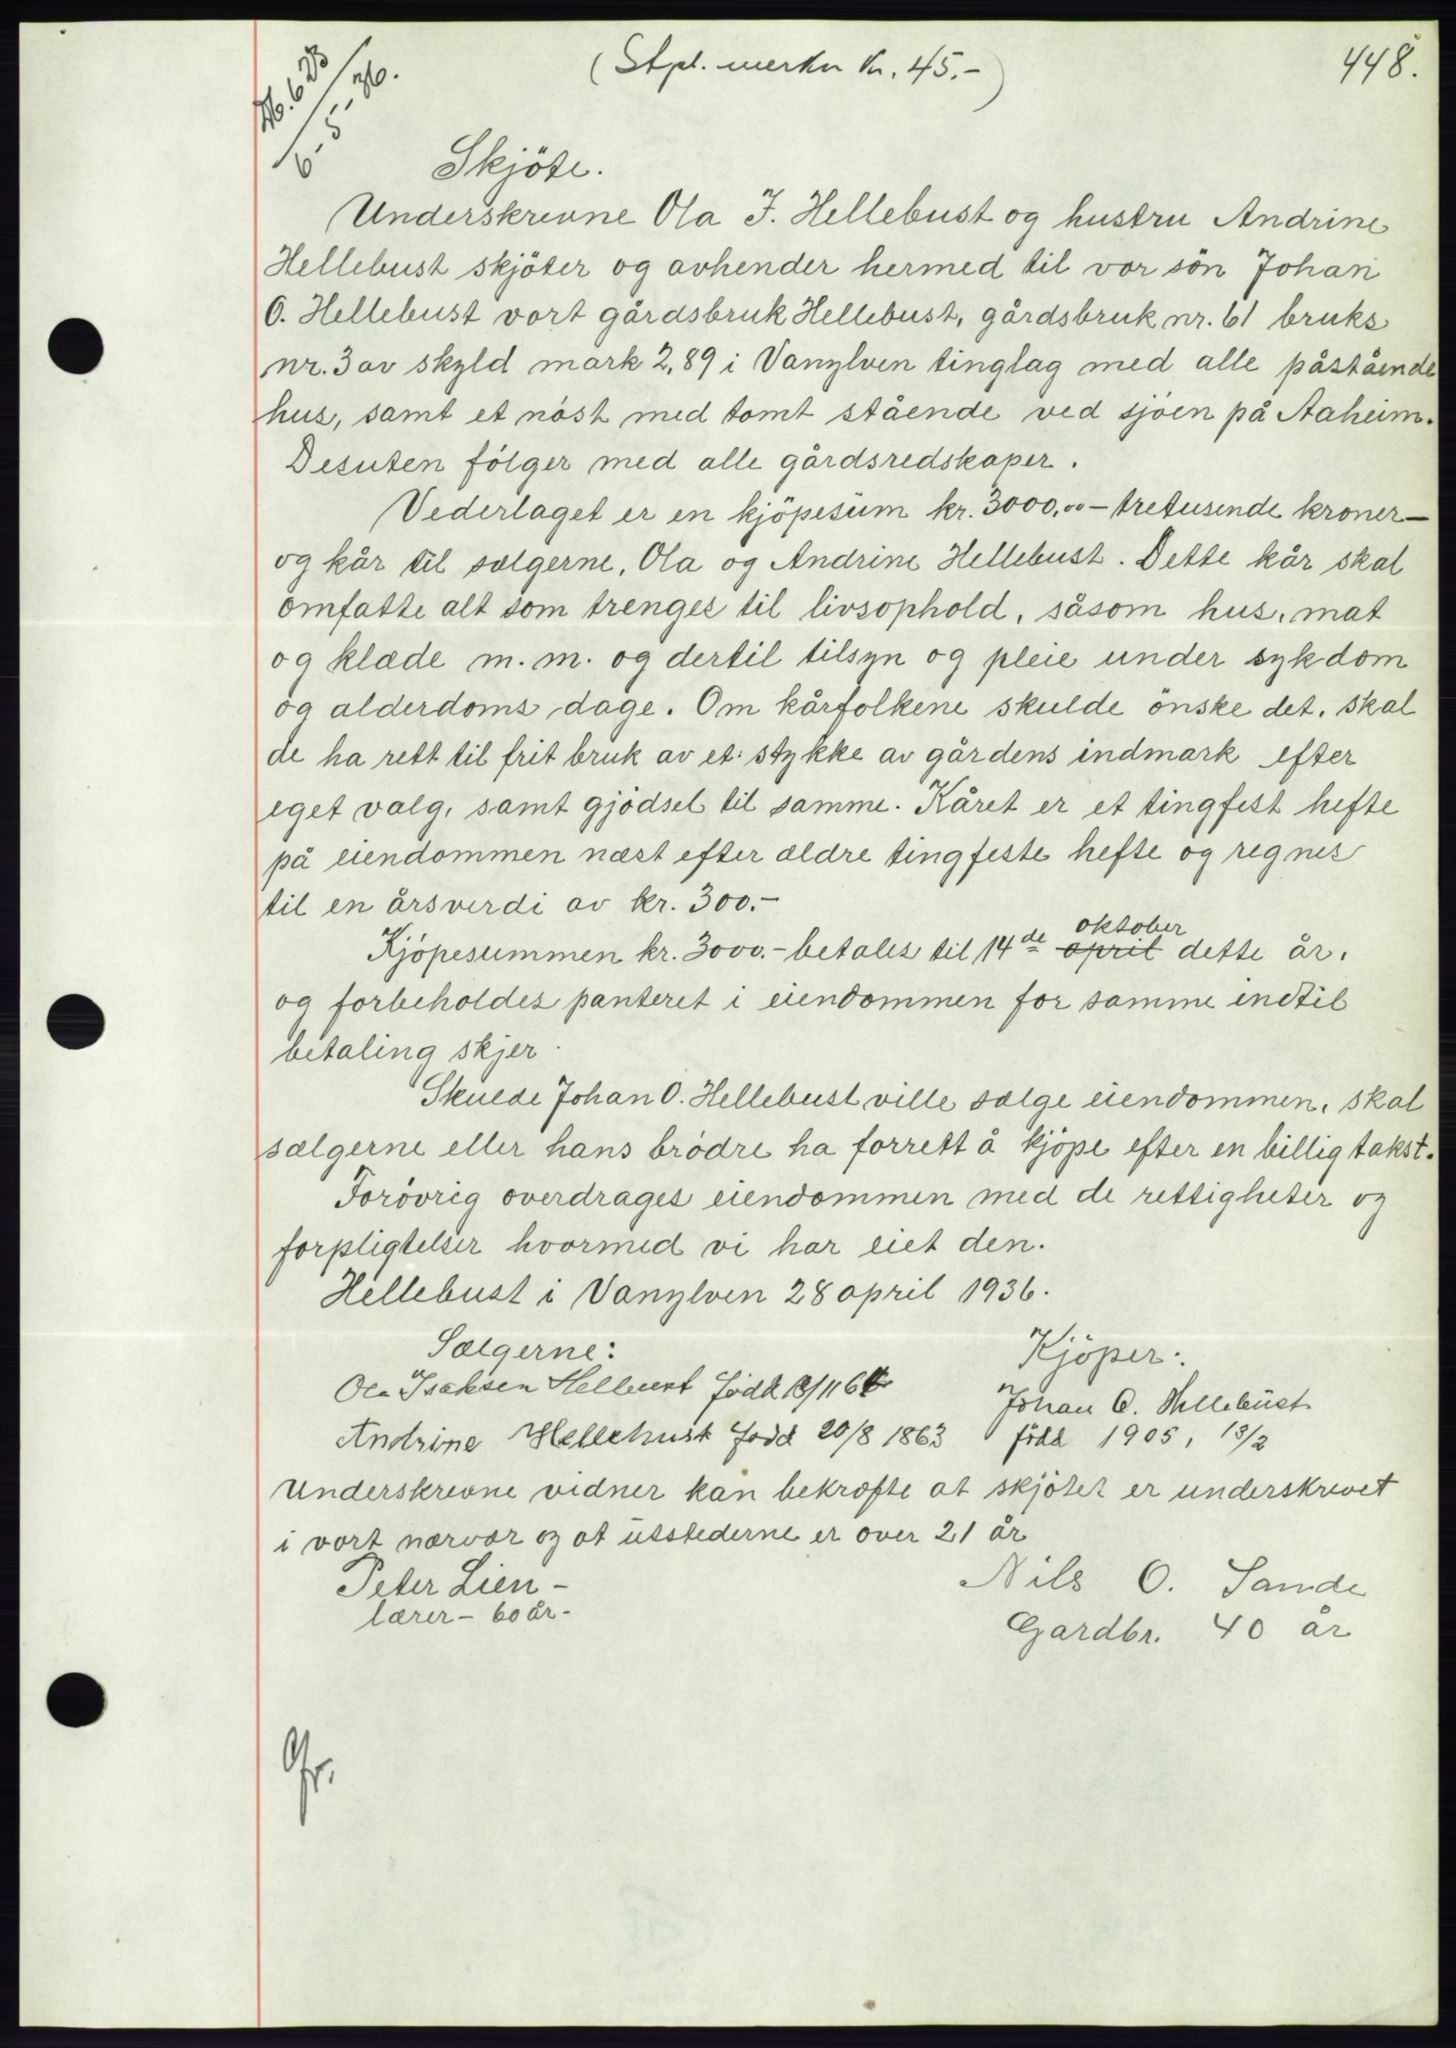 448.
(Stpl. merker Kr. 45.-)
6-5-36.
Skjöte.
Underskrevne Ola I. Hellebust og hustru Andrine
Hellebust skjöter og avhender hermed til vor sön Johan
O. Hellebust vort gårdsbruk Hellebust, gårdsbruk nr. 61 bruks
nr. 3 av skyld mark 2,89 i Vanylven tinglag med alle påstående
hus, samt et nöst med tomt stående ved sjöen på Aaheim.
Desuten fölger med alle gårdsredskaper.
Vederlaget er en kjöpesum kr. 3000,00 – tretusende kroner –
og kår til sælgerne, Ola og Andrine Hellebust. Dette kår skal
omfatte alt som trenges til livsophold, såsom hus, mat
og klæde m.m. og dertil tilsyn og pleie under sykdom
og alderdoms dage. Om kårfolkene skulde önske det, skal
de ha rett til frit bruk av et stykke av gårdens indmark efter
eget valg, samt gjödsel til samme. Kåret er et tingfest hefte
på eiendommen næst efter ældre tingfeste hefte og regnes
til en årsverdi av kr. 300.-
oktober
Kjöpesummen kr. 3000.- betales til 14de april dette år,
og forbeholdes panteret i eiendommen for samme indtil
betaling skjer.
Skulde Johan O. Hellebust ville sælge eiendommen, skal
sælgerne eller hans brödre ha forrett å kjöpe efter en billig takst.
Forövrig overdrages eiendommen med de rettigheter og
forpligtelser hvormed vi har eiet den.
Hellebust i Vanylven 28 april 1936.
Sælgerne: Kjöper:
Ola Isaksen Hellebust född Johan O. Hellebust
Andrine Hellebust född 20/8 1863 född 1905, 13/2
Underskrevne vidner kan bekræfte at skjötet er underskrevet
i vort nærvær og at utstederne er over 21 år
Peter Lien – Nils O. Sande
lærer – 60 år – Gardbr. 40 år